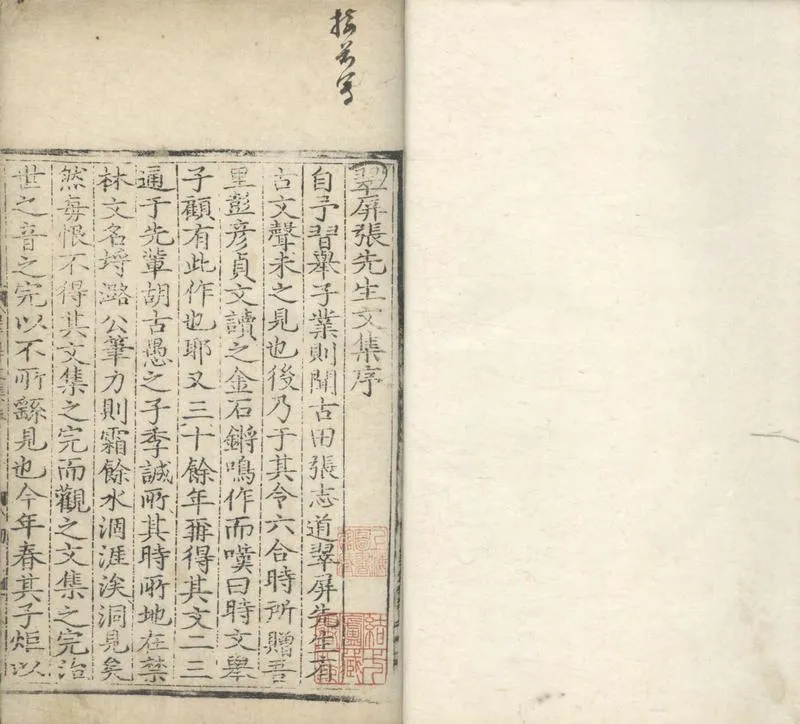 翠屏張先生文集序
自予習舉子業則聞古田張志道翠屏先生有
古文聲未之見也後乃于其令六合時所贈吾
里彭彥貞文讀之金石鏘鳴作而嘆曰時文舉
子顧有此作也耶又三十餘年再得其文二三
通于先輩胡古愚之子季誠所其時所地在禁
林文名埒潞公筆力則霜餘水涸涯涘洞見矣
然每恨不得其文集之完而觀之文集之完治
世之音之完以不所繇見也今年春其子炬以